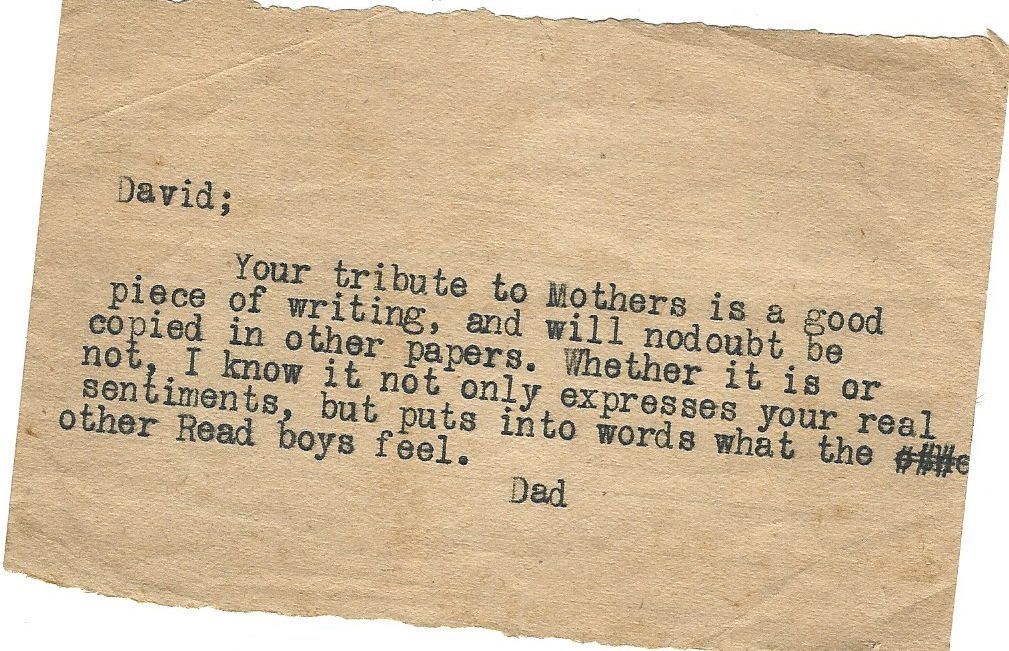 David;
Your tribute to Mothers is a good
piece of writing, and will nodoubt be
copied in other papers. Whether it is or
not, I know it not only expresses your real
sentiments, but puts into words what the
other Read boys feel.
Dad